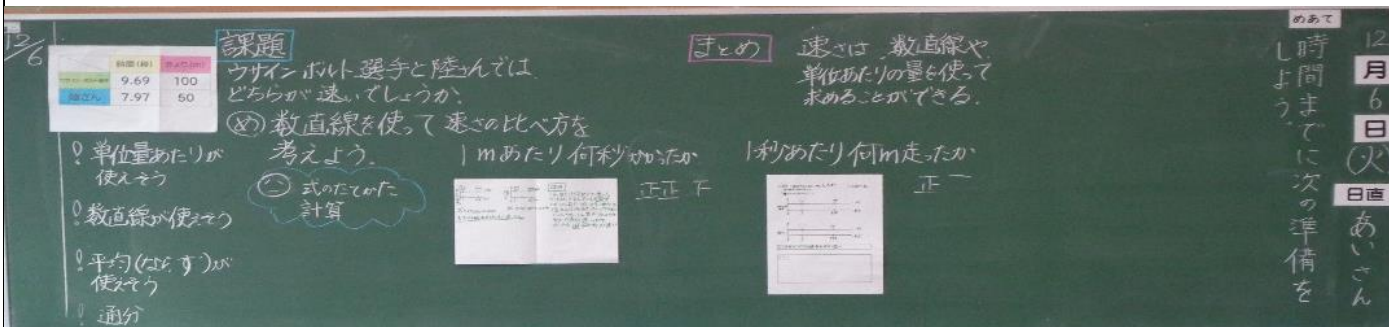 12/6
時間(秒) きょり(m)
9.69 100
陸さん 7.97 50
課題
ウサイン ボルト選手と陸さんでは
どちらが速いでしょうか。
め 数直線を使って 速さの比べ方を
考えよう。
! 単位量あたりが
使えそう
! 数直線が使えそう
! 平均(ならす)が
使えそう
! 通分
式のたてかた
計算
1mあたり何秒かかったか
正正下
1秒あたり何m走ったか
正一
まとめ
速さは、数直線や
単位あたりの量を使って
求めることができる。
めあて
時間までに次の準備を
しよう。
12月6日(火)
日直
あいさん